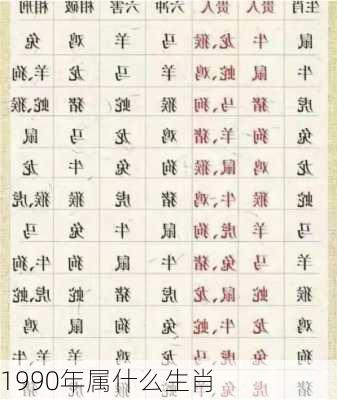 生肖 贵人 贵人 六冲 六害 相破 相刑
鼠 牛 龙、猴 马 羊 鸡 兔
牛 鼠 蛇、鸡 羊 马 龙 羊、狗
虎 猪 马、狗 猴 蛇 猪 蛇、猴
兔 狗 羊、猪 鸡 龙 马 鼠
龙 鸡 鼠、猴 狗 兔 牛 龙
蛇 猴 牛、鸡 猪 虎 猴 猴、虎
马 羊 虎、狗 鼠 牛 兔 马
羊 马 兔、猪 牛 鼠 狗 牛、狗
猴 蛇 鼠、龙 虎 猪 蛇 虎、蛇
鸡 龙 牛、蛇 兔 狗 鼠 鸡
狗 兔 龙 鸡 羊
1990年属什么生肖